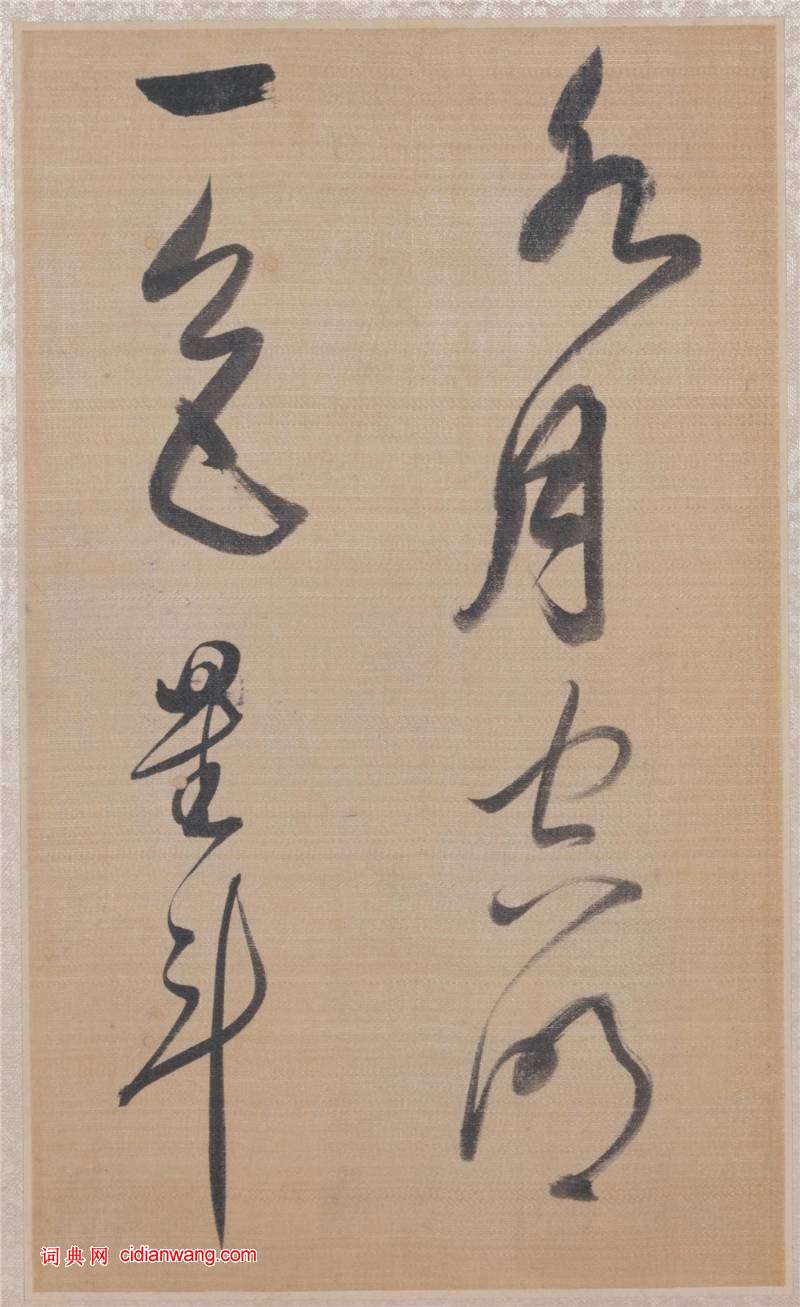 水月明
一色星斗
词典网 cidianwang.com